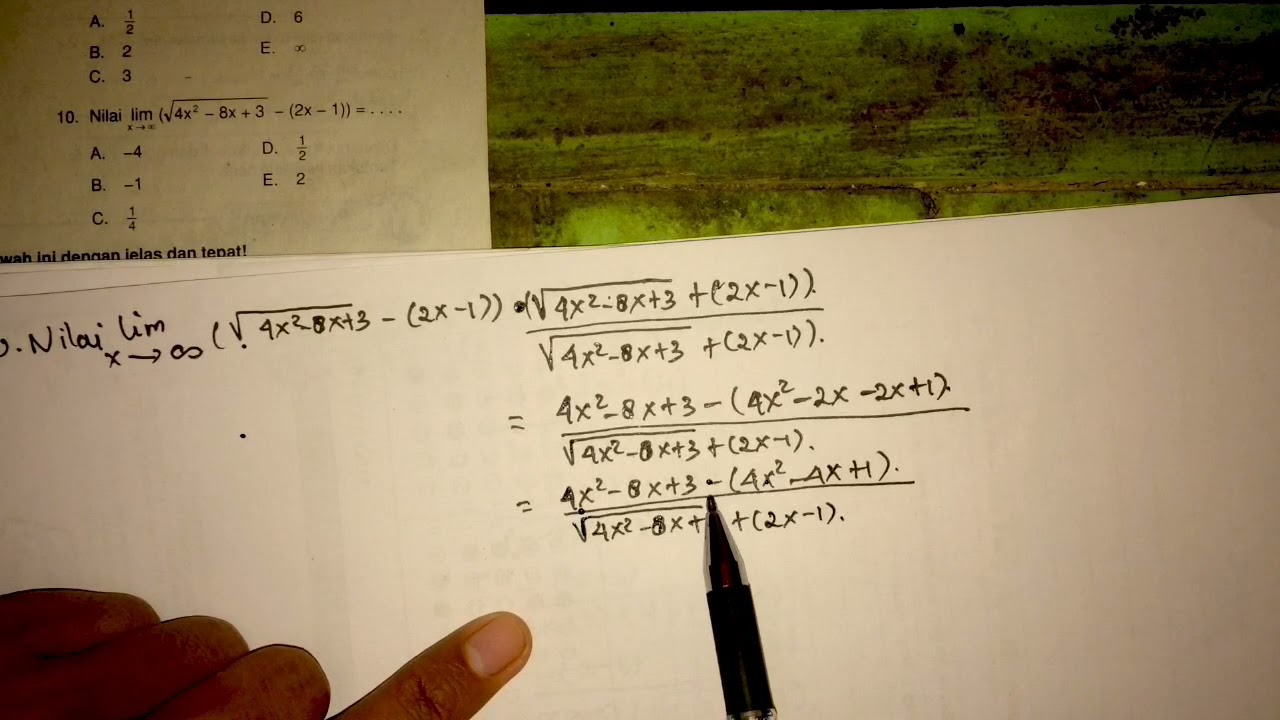 A. 1/2 D. 6
B. 2 E. ∞
C. 3
10. Nilai lim x→∞ (√(4x² − 8x + 3) − (2x − 1)) = . . . .
A. −4 D. 1/2
B. −1 E. 2
C. 1/4
wah ini dengan jelas dan tepat!
. Nilai lim x→∞ (√(4x²-8x+3) - (2x-1)) • (√(4x²-8x+3) + (2x-1)). / √(4x²-8x+3) + (2x-1)).
= 4x²-8x+3 - (4x²-2x-2x+1). / √(4x²-8x+3) + (2x-1).
= 4x²-8x+3 - (4x²-4x+1). / √(4x²-8x+ + (2x-1).